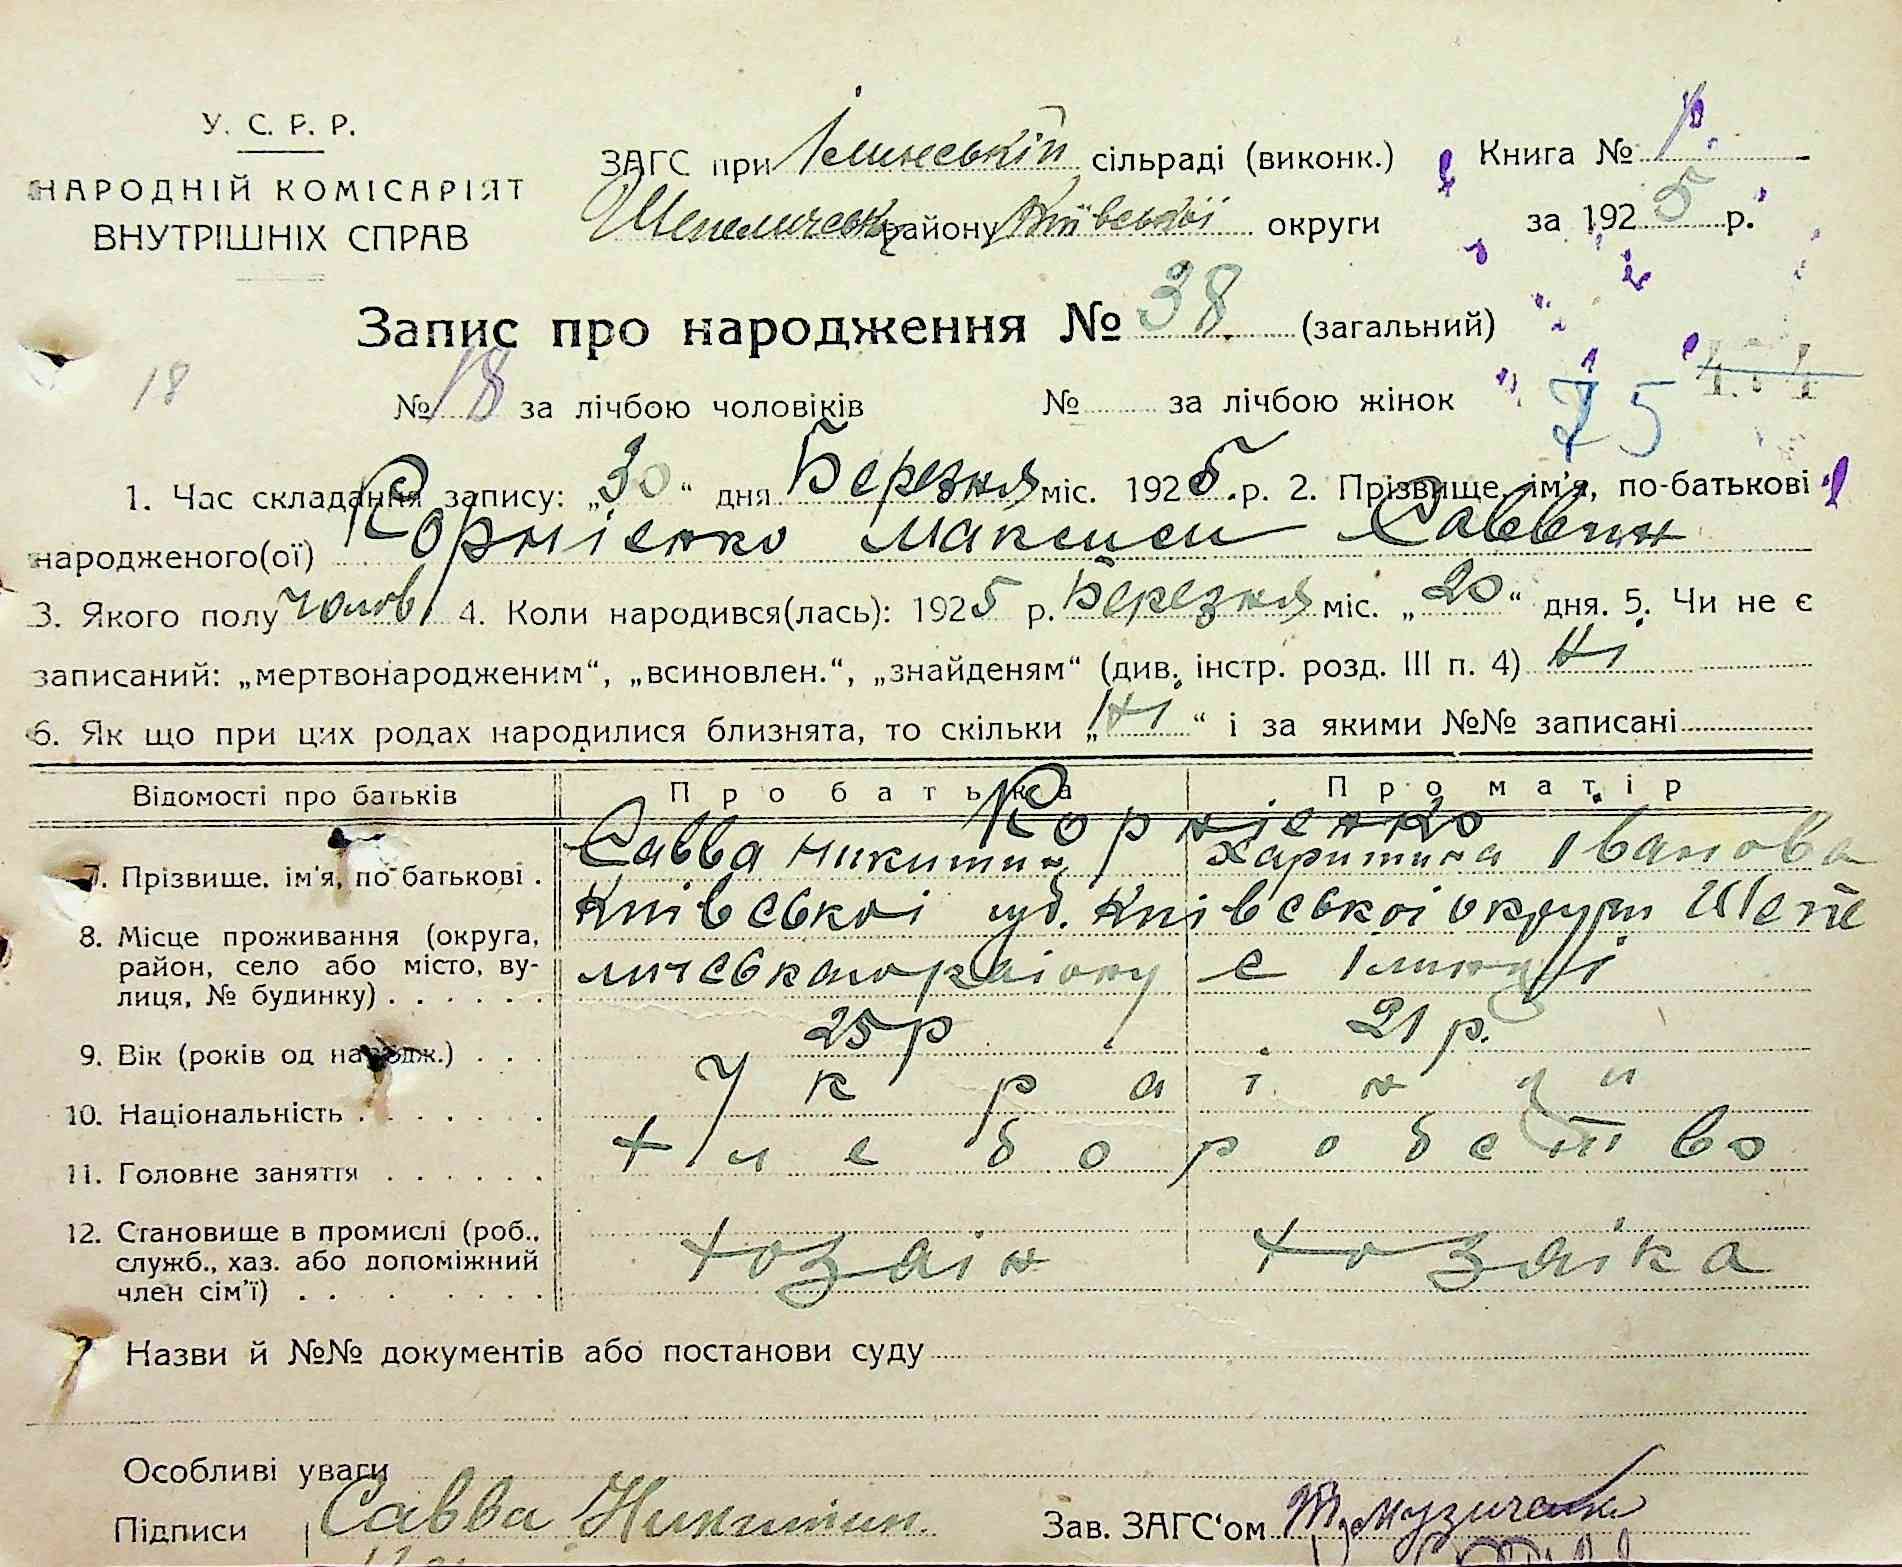 У. С. Р. Р.
НАРОДНІЙ КОМІСАРІЯТ
ВНУТРІШНІХ СПРАВ
ЗАГС при Ілинській сільраді (виконк.)
Шепелическ району Київської округи
Книга № 1
за 1925 р.
Запис про народження № 38 (загальний)
18
№ 18 за лічбою чоловіків № за лічбою жінок
75
1. Час складання запису: „30“ дня Березня міс. 1925 р. 2. Прізвище, ім'я, по-батькові
народженого(ої) Корнієнко Максим Саввин
3. Якого полу чолов 4. Коли народився(лась): 1925 р. Березня міс. „20“ дня. 5. Чи не є
записаний: „мертвонародженим“, „всиновлен.“, „знайденям“ (див. інстр. розд. III п. 4) Ні
6. Як що при цих родах народилися близнята, то скільки „Ні“ і за якими №№ записані
Відомості про батьків Про батька Про матір
Корнієнко
7. Прізвище, ім'я, по-батькові . Савва Никитин Харитина Іванова
8. Місце проживання (округа, район, село або місто, вулиця, № будинку) . . . . . . Київської губ. Київської округи Шепе
личського району с Ілинці
9. Вік (років од народж.) . . . 25 р 21 р.
10. Національність . . . . . . . Українці
11. Головне заняття . . . . . . Хлеборобство
12. Становище в промислі (роб., служб., хаз. або допоміжний член сім'ї) . . . . . . . . Хозаін Хозаіка
Назви й №№ документів або постанови суду
Особливі уваги
Підписи Савва Никитин
Зав. ЗАГС'ом Музиченко